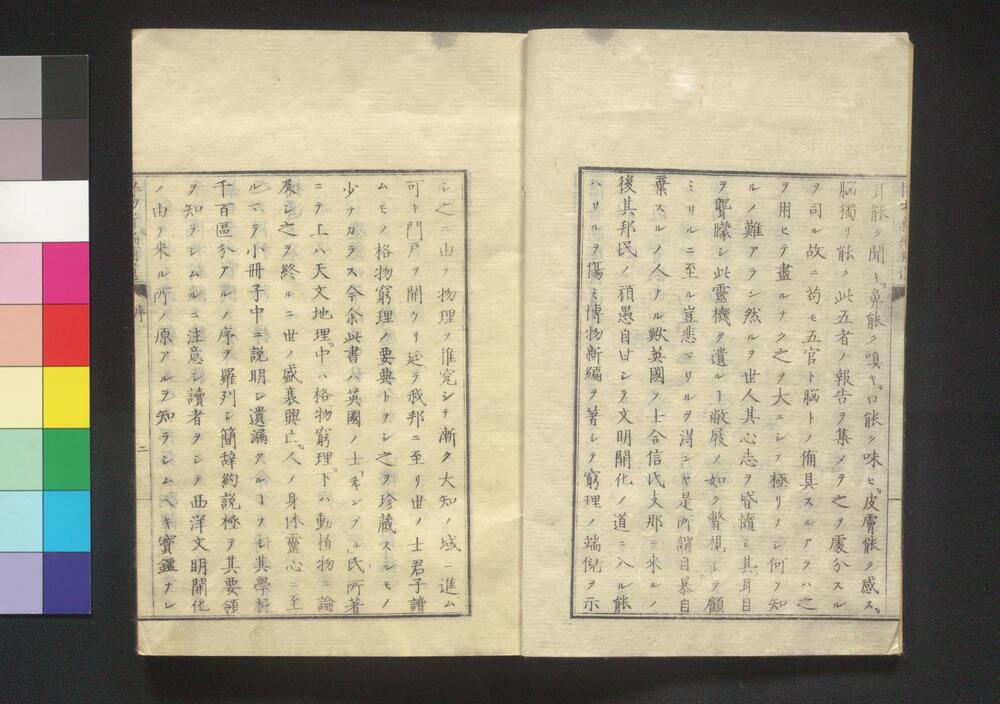 耳能ク聞キ。鼻能ク嗅キ。口能ク味ヒ。皮膚能ク感ス。
脳獨リ能ク此五者ノ報告ヲ集メテ之ヲ處分スル
ヲ司ル故ニ苟モ五官ト脳トノ備具スルアラハ之
ヲ用ヒテ盡ルナク之ヲ大ニシテ極リナシ何ソ知
ルノ難アラン然ルヲ世人其心志ヲ昏惰シ其耳目
ヲ聾矇シ此靈機ヲ遺ルヿ敝屣ノ如ク瞥視シテ顧
ミサルニ至ル豈悲マサルヲ得ンヤ是所謂自暴自
棄スルノ人ナル歟英國ノ士合信氏支那ニ来ルノ
後其邦民ノ頑愚自甘シテ文明開化ノ道ニ入ル能
ハサルヲ傷ミ博物新編ヲ著シテ窮理ノ端倪ヲ示
シ之ニ由テ物理ヲ推究シテ漸ク大知ノ域ニ進ム
可キ門戸ヲ開ケリ延テ我邦ニ至リ世ノ士君子讀
ムモノ格物窮理ノ要典トナシ之ヲ珍蔵スルモノ
少ナカラス今余此書ハ英國ノ士「キンブル」氏所著
ニテ上ハ天文地理。中ハ格物窮理。下ハ動植物ニ論
及シ之ヲ終ルニ世ノ盛衰興亡。人ノ身体靈心ニ至
ルマテ小冊子中ニ説明シ遺漏アルヿナシ其學科
千百區分アルノ序ヲ羅列シ簡辞約説極ヲ其要領
ヲ知ラシムルニ注意シ讀者ヲシテ西洋文明開化
ノ由テ来ル所ノ原アルヲ知ラシムヘキ寶鑑ナレ
序
二